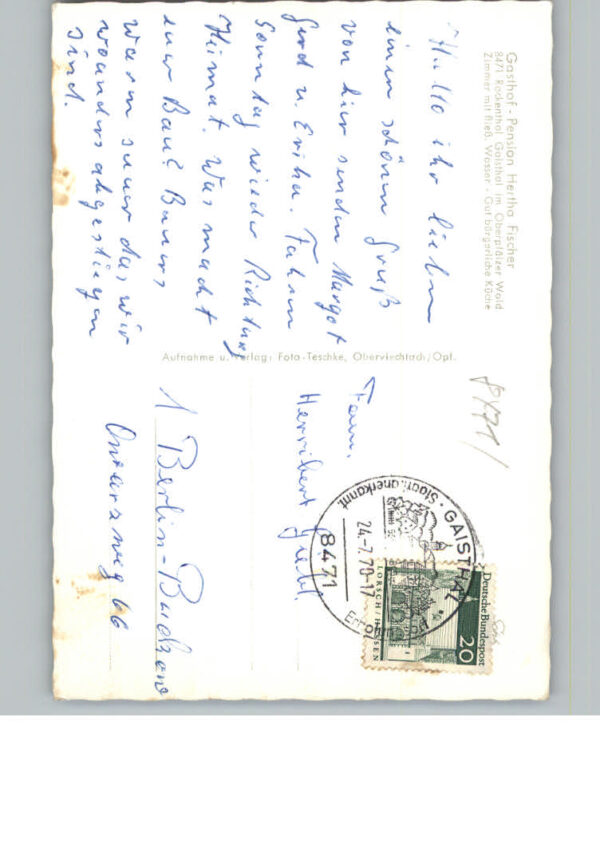 Gasthof - Pension Hertha Fischer
8471 Rackenthal Gaisthal im Oberpfälzer Wald
Zimmer mit fließ. Wasser - Gut bürgerliche Küche
Hallo ihr lieben
einen schönen Gruß
von hier senden Margot
Gerd u. Erika. Fahren
Sonntag wieder Richtung
Heimat. Was macht
euer Bau? Bauers
waren sauer das wir
woanders abgestiegen
sind.
Aufnahme u. Verlag: Foto-Teschke, Oberviechtach/Opf.
Fam.
Herribert
1 Berlin-Buckow
66
8471/
Deutsche Bundespost
20
LORSCH/HESSEN
8471 GAISTHAL
24.-7.70-17
Staatl. anerkannt.